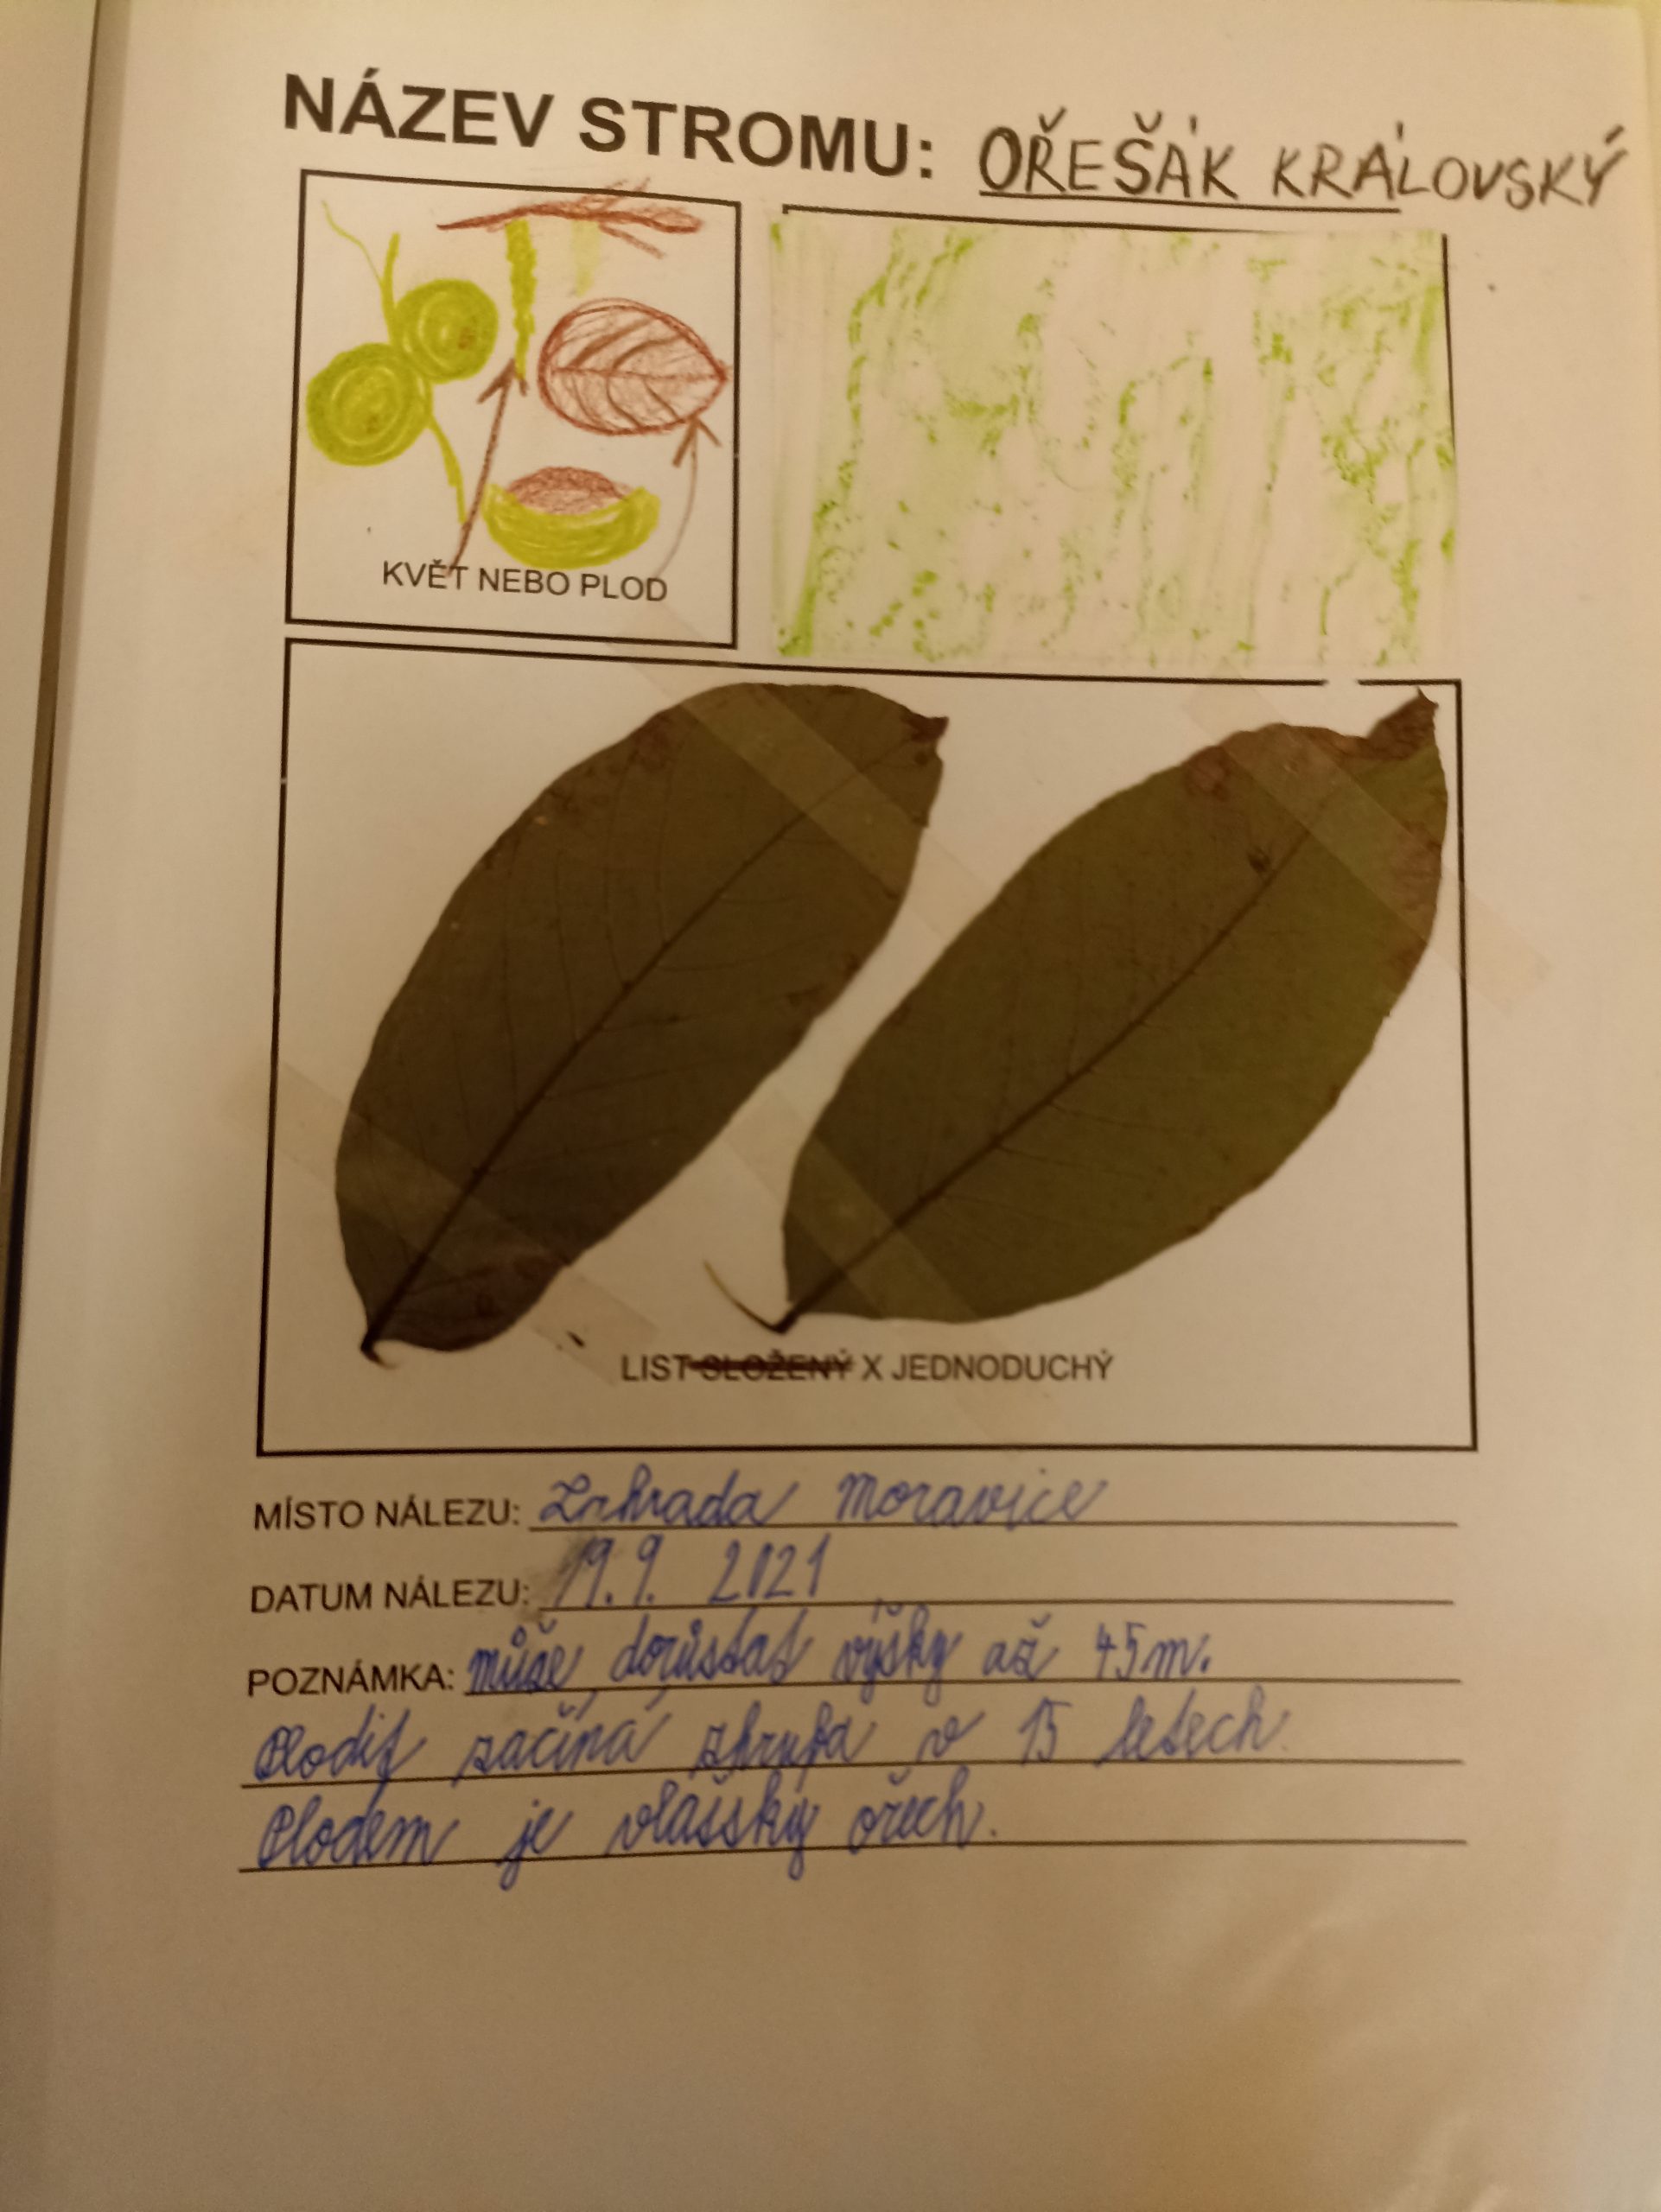 NÁZEV STROMU: OŘEŠÁK KRÁLOVSKÝ
KVĚT NEBO PLOD
LIST SLOŽENÝ X JEDNODUCHÝ
MÍSTO NÁLEZU: Zahrada Moravice
DATUM NÁLEZU: 19.9. 2021
POZNÁMKA: může dorůstat výšky až 45m.
Plodit začíná zhruba v 15 letech.
Plodem je vlašský ořech.